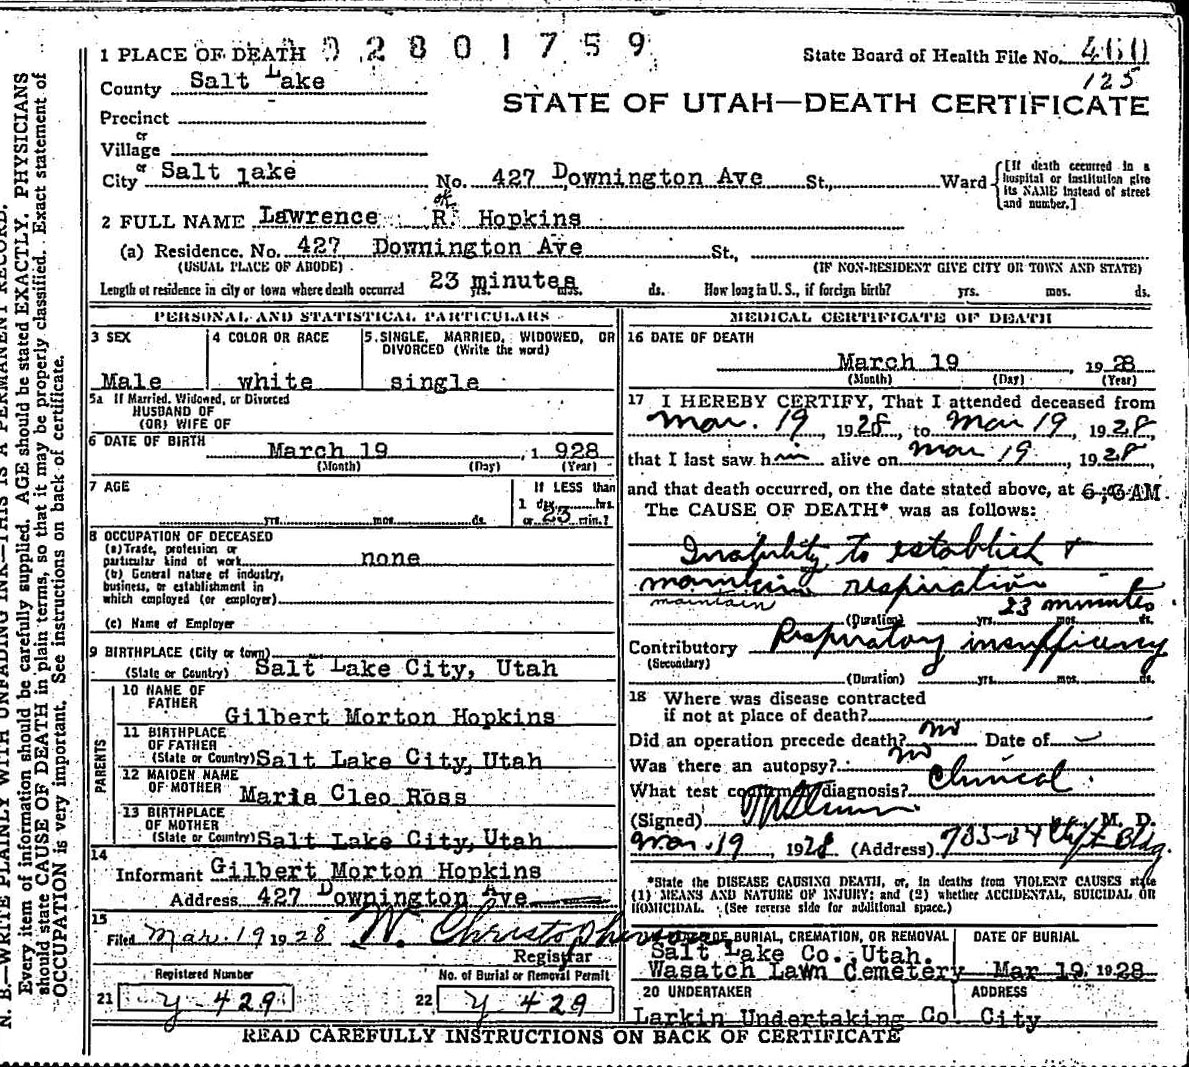 1 PLACE OF DEATH 0 2 8 0 1 7 5 9
State Board of Health File No. 460
125
County Salt Lake
STATE OF UTAH—DEATH CERTIFICATE
Precinct
or
Village
or
City Salt lake No. 427 Downington Ave St., Ward
[If death occurred in a hospital or institution give its NAME instead of street and number.]
ok
2 FULL NAME Lawrence R. Hopkins
(a) Residence. No. 427 Downington Ave St.,
(USUAL PLACE OF ABODE) (IF NON-RESIDENT GIVE CITY OR TOWN AND STATE)
Length of residence in city or town where death occurred 23 minutes yrs. mos. ds. How long in U. S., if foreign birth? yrs. mos. ds.
PERSONAL AND STATISTICAL PARTICULARS
3 SEX
Male
4 COLOR OR RACE
white
5. SINGLE, MARRIED, WIDOWED, OR
DIVORCED (Write the word)
single
5a If Married, Widowed, or Divorced
HUSBAND OF
(OR) WIFE OF
6 DATE OF BIRTH
March 19, 1 928
(Month) (Day) (Year)
7 AGE
yrs. mos. ds.
If LESS than
1 day hrs.
or 23 min.?
8 OCCUPATION OF DECEASED
(a) Trade, profession or
particular kind of work none
(b) General nature of industry,
business, or establishment in
which employed (or employer)
(c) Name of Employer
9 BIRTHPLACE (City or town)
(State or Country) Salt Lake City, Utah
PARENTS
10 NAME OF
FATHER
Gilbert Morton Hopkins
11 BIRTHPLACE
OF FATHER
(State or Country) Salt Lake City, Utah
12 MAIDEN NAME
OF MOTHER Maria Cleo Ross
13 BIRTHPLACE
OF MOTHER
(State or Country) Salt Lake City, Utah
14
Informant Gilbert Morton Hopkins
Address 427 Downington Ave
15
Filed Mar. 19 1928 W. Christopherson
Registrar
Registered Number No. of Burial or Removal Permit
21 y-429 22 y 429
MEDICAL CERTIFICATE OF DEATH
16 DATE OF DEATH
March 19, 1928
(Month) (Day) (Year)
17 I HEREBY CERTIFY, That I attended deceased from
Mar. 19, 1928, to Mar 19, 1928,
that I last saw him alive on Mar 19, 1928,
and that death occurred, on the date stated above, at AM.
The CAUSE OF DEATH* was as follows:
Inability to establish &
maintain respiration
maintain 23 minutes
(Duration) yrs. mos. ds.
Contributory Respiratory insufficiency
(Secondary)
(Duration) yrs. mos. ds.
18 Where was disease contracted
if not at place of death?
Did an operation precede death? no Date of
Was there an autopsy? no
What test confirmed diagnosis? Clinical
(Signed) M. D.
Mar. 19, 1928 (Address) Bldg.
*State the DISEASE CAUSING DEATH, or, in deaths from VIOLENT CAUSES state
(1) MEANS AND NATURE OF INJURY; and (2) whether ACCIDENTAL, SUICIDAL OR
HOMICIDAL. (See reverse side for additional space.)
OF BURIAL, CREMATION, OR REMOVAL
Salt Lake Co., Utah.
Wasatch Lawn Cemetery
DATE OF BURIAL
Mar 19 1928
20 UNDERTAKER
Larkin Undertaking Co
ADDRESS
City
READ CAREFULLY INSTRUCTIONS ON BACK OF CERTIFICATE
N. B.—WRITE PLAINLY WITH UNFADING INK—THIS IS A PERMANENT RECORD.
Every item of information should be carefully supplied. AGE should be stated EXACTLY. PHYSICIANS
should state CAUSE OF DEATH in plain terms, so that it may be properly classified. Exact statement of
OCCUPATION is very important. See instructions on back of certificate.